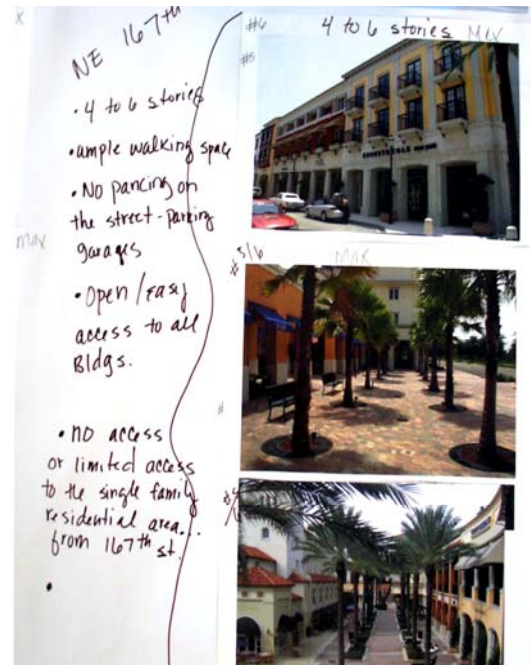 NE 167th
• 4 to 6 stories
• ample walking space
• No parcing on
the street - parking
garages
• Open / easy
access to all
Bldgs.
• no access
or limited access
to the single family
residential area...
from 167th st.
•
x
max
#6
4 to 6 stories
#5
# 5/6
MAX